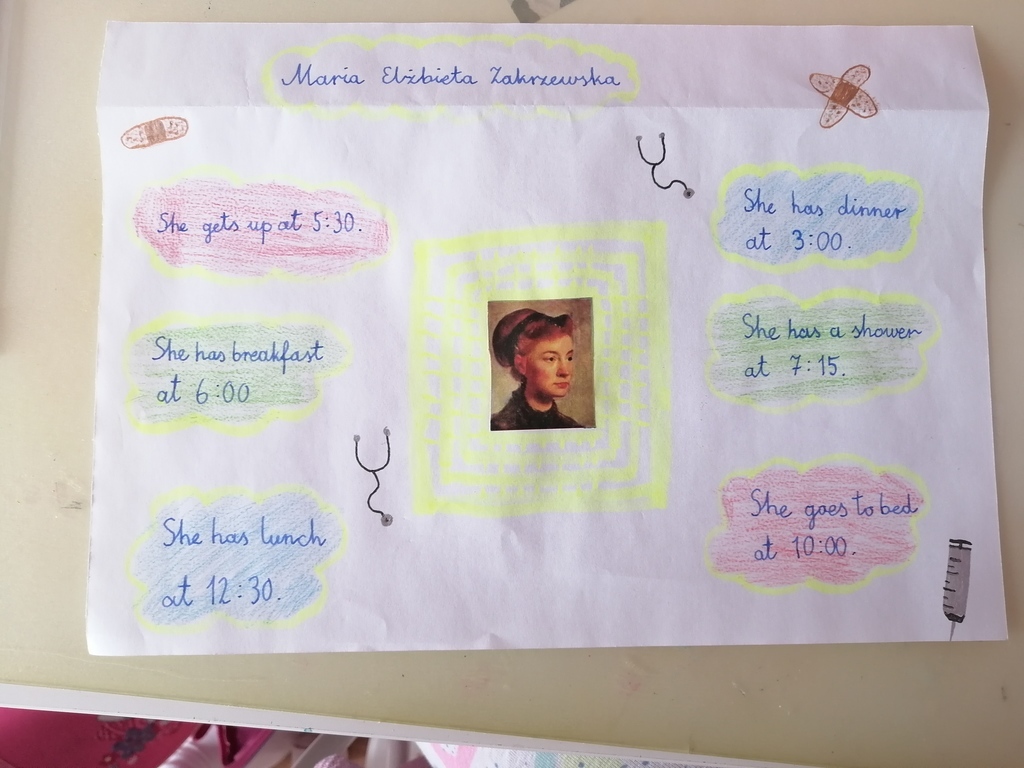 Maria Elżbieta Zakrzewska
She gets up at 5:30.
She has breakfast
at 6:00
She has lunch
at 12:30.
She has dinner
at 3:00.
She has a shower
at 7:15.
She goes to bed
at 10:00.